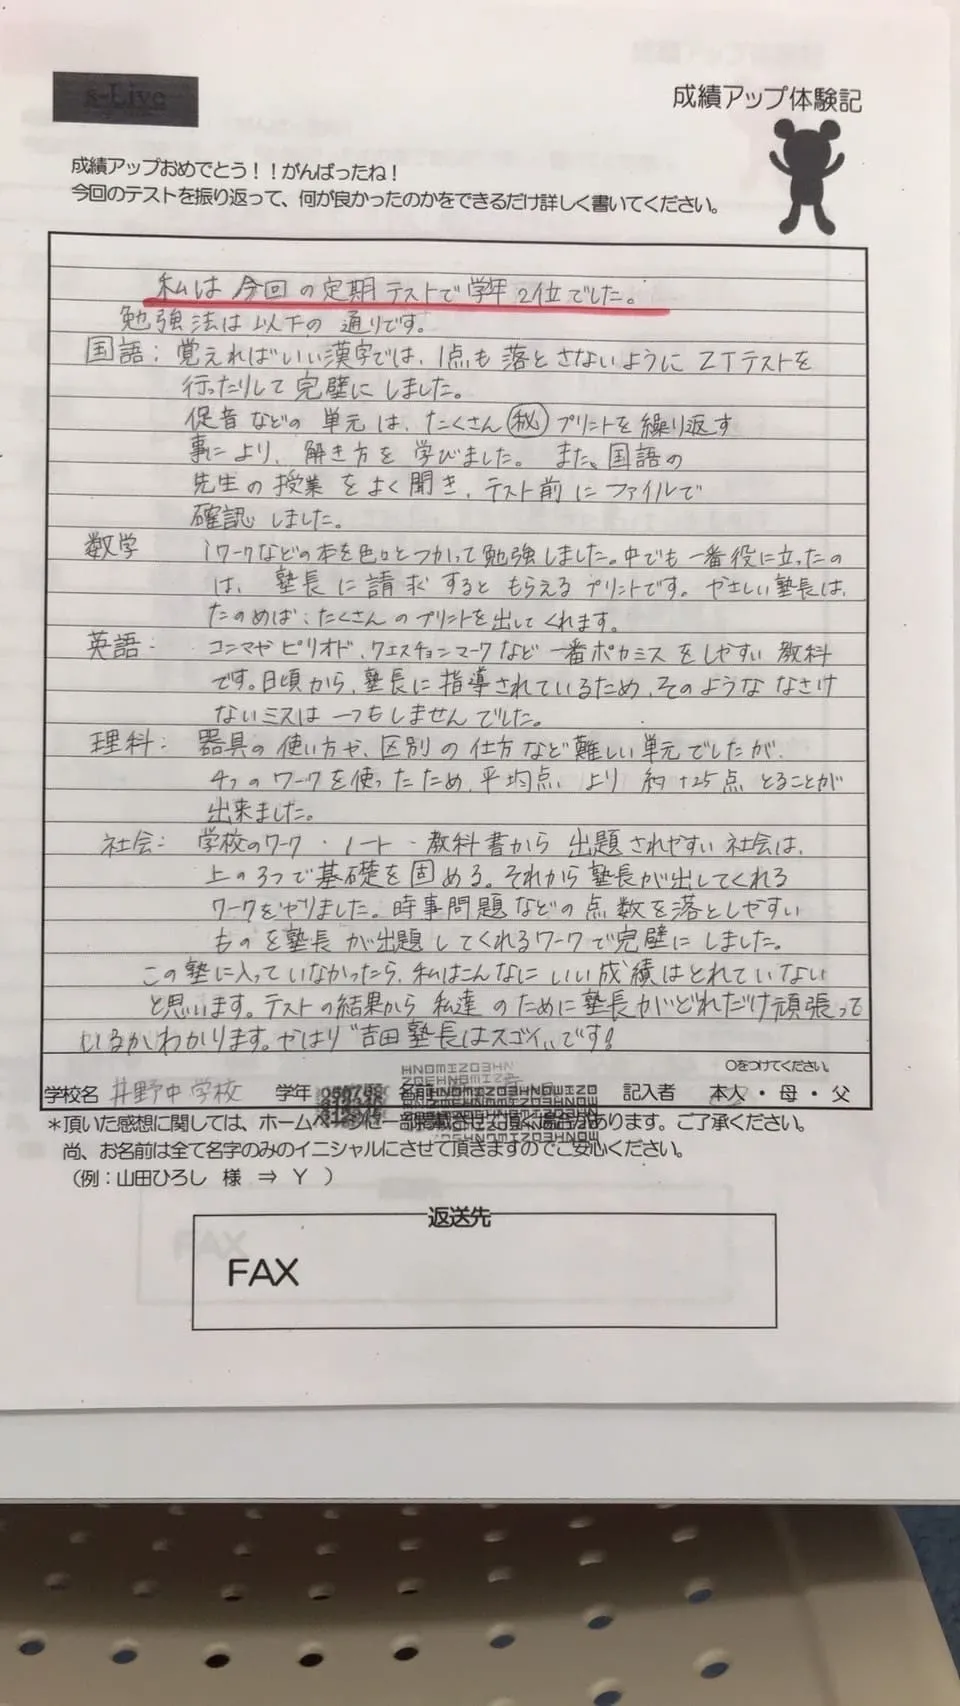 s-Live
成績アップ体験記
成績アップおめでとう！！がんばったね！
今回のテストを振り返って、何が良かったのかをできるだけ詳しく書いてください。
私は今回の定期テストで学年2位でした。
勉強法は以下の通りです。
国語：覚えればいい漢字では、1点も落とさないようにZTテストを
行ったりして完璧にしました。
促音などの単元は、たくさん㊙プリントを繰り返す
事により、解き方を学びました。また、国語の
先生の授業をよく聞き、テスト前にファイルで
確認しました。
数学 iワークなどの本を色々とつかって勉強しました。中でも一番役に立ったの
は、塾長に請求するともらえるプリントです。やさしい塾長は、
たのめば、たくさんのプリントを出してくれます。
英語： コンマやピリオド、クエスチョンマークなど一番ポカミスをしやすい教科
です。日頃から、塾長に指導されているため、そのようななさけ
ないミスは一つもしませんでした。
理科： 器具の使い方や、区別の仕方など難しい単元でしたが、
4つのワークを使ったため、平均点より約+25点とることが
出来ました。
社会： 学校のワーク・ノート・教科書から出題されやすい社会は、
上の3つで基礎を固める。それから塾長が出してくれる
ワークをやりました。時事問題などの点数を落としやすい
ものを塾長が出題してくれるワークで完璧にしました。
この塾に入っていなかったら、私はこんなにいい成績はとれていない
と思います。テストの結果から私達のために塾長がどれだけ頑張って
いるかがわかります。やはり"吉田塾長はスゴイ"です!
○をつけてください。
学校名 井野中学校 学年 名前 記入者 本人・母・父
＊頂いた感想に関しては、ホームページに一部掲載させて頂く場合があります。ご了承ください。
尚、お名前は全て名字のみのイニシャルにさせて頂きますのでご安心ください。
（例：山田ひろし 様 ⇒ Y ）
返送先
FAX